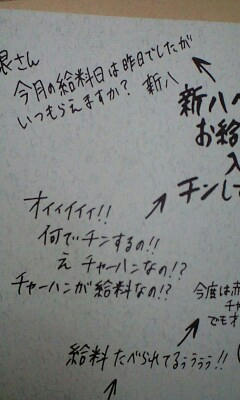 根さん
今月の給料日は昨日でしたが
いつもらえますか? 新八
新八へ
お給
入
チンして
オイィイィイ!!
何でチンするの!!
え チャーハンなの!?
チャーハンが給料なの!?
今度は赤
チャ
でもオ
給料 たべられてるぅぅぅぅ!!